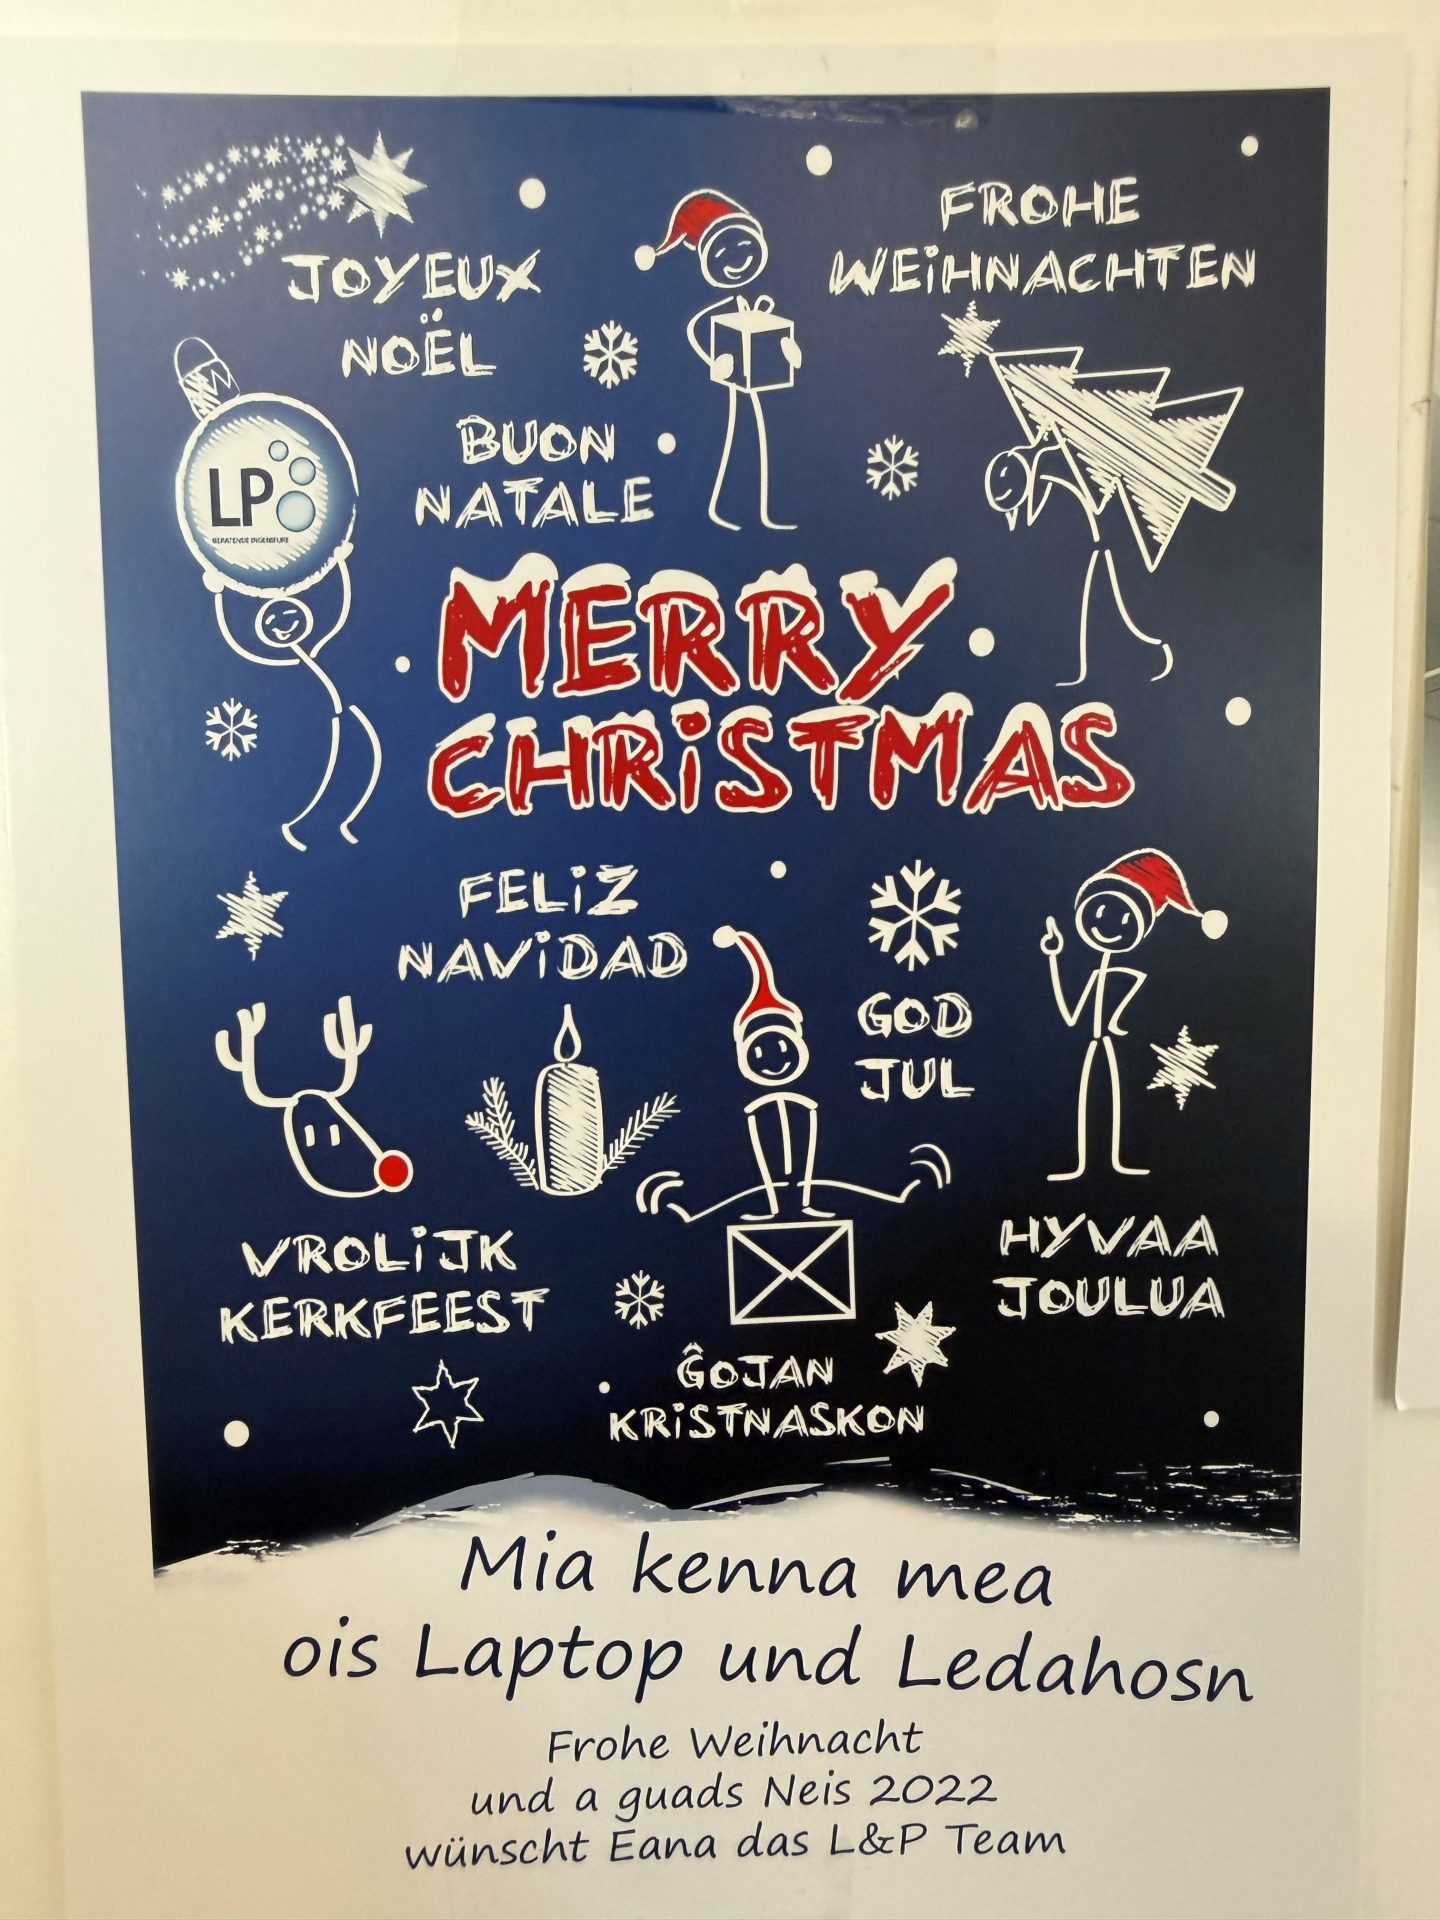 JOYEUX
NOËL
FROHE
WEiHNACHTEN
BUON
NATALE
LP
BERATENDE INGENIEURE
MERRY
CHRiSTMAS
FELiZ
NAViDAD
GOD
JUL
VROLiJK
KERKFEEST
HYVAA
JOULUA
ĜOJAN
KRiSTNASKON
Mia kenna mea
ois Laptop und Ledahosn
Frohe Weihnacht
und a guads Neis 2022
wünscht Eana das L&P Team